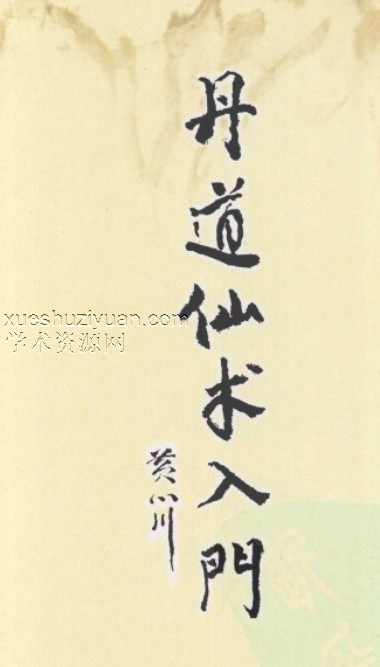 丹道仙术入門
xueshuziyuan.com
学术资源网